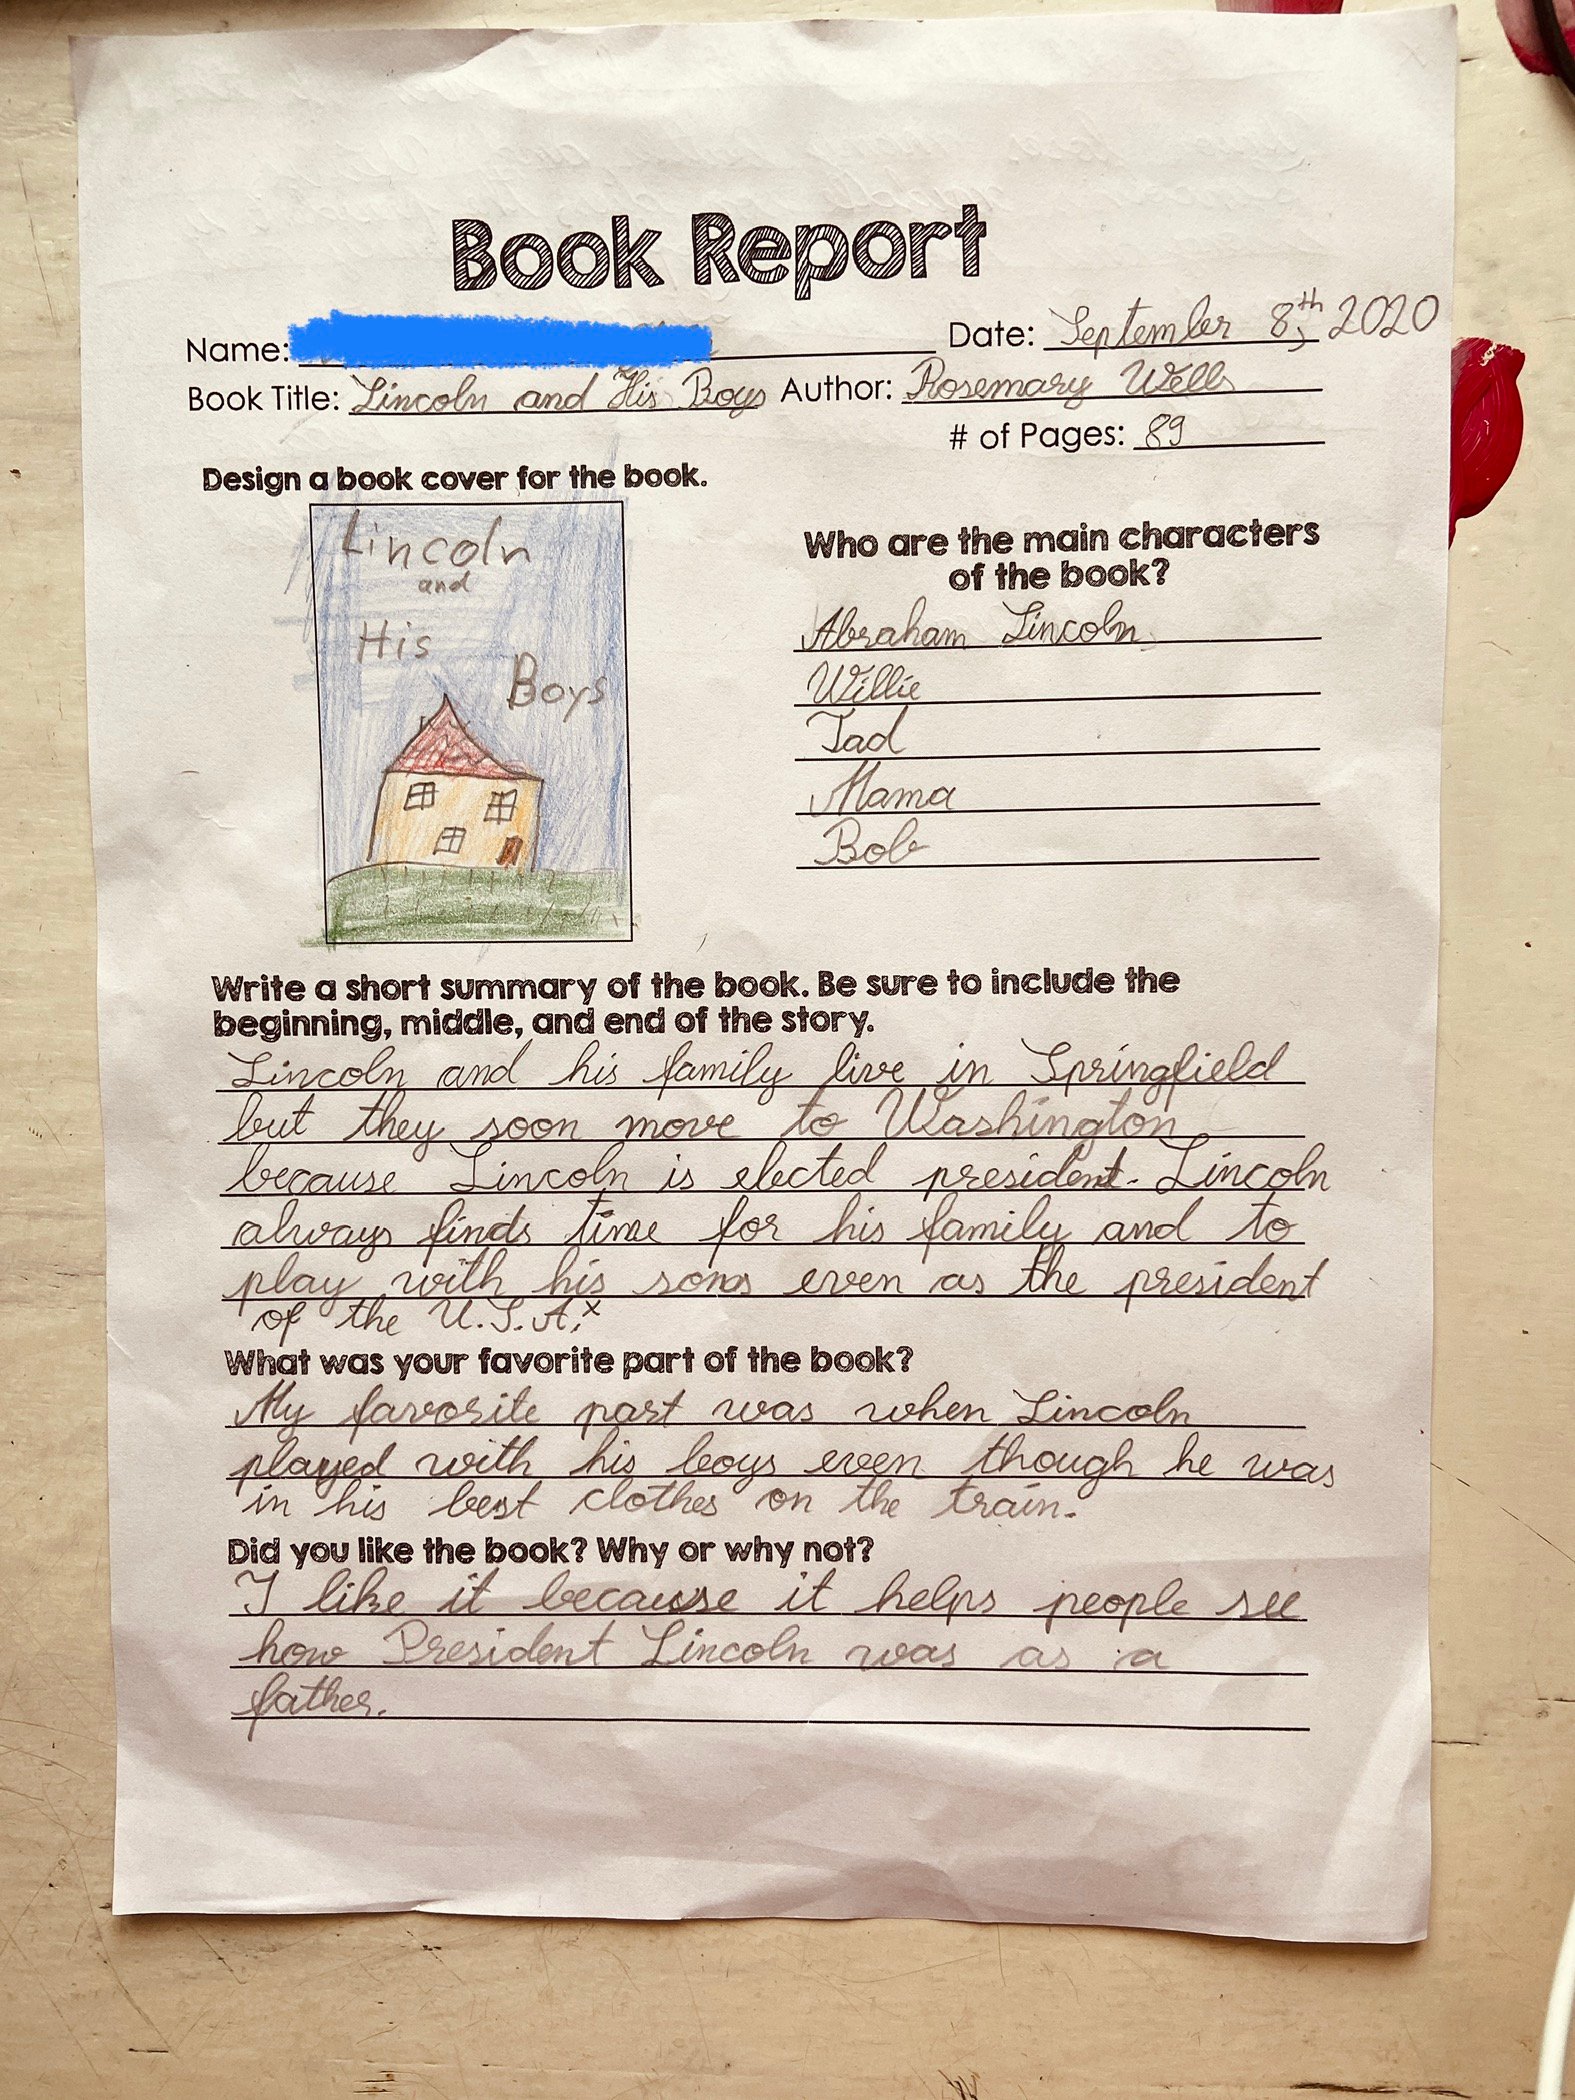 Book Report
Name: Date: September 8th, 2020
Book Title: Lincoln and His Boys Author: Rosemary Wells
# of Pages: 89
Design a book cover for the book.
Lincoln
and
His
Boys
Who are the main characters
of the book?
Abraham Lincoln
Willie
Tad
Mama
Bob
Write a short summary of the book. Be sure to include the
beginning, middle, and end of the story.
Lincoln and his family live in Springfield
but they soon move to Washington
because Lincoln is elected president. Lincoln
always finds time for his family and to
play with his sons even as the president
of the U.S.A.x
What was your favorite part of the book?
My favorite part was when Lincoln
played with his boys even though he was
in his best clothes on the train.
Did you like the book? Why or why not?
I like it because it helps people see
how President Lincoln was as a
father.